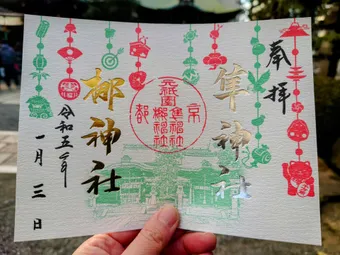 奉拝
隼神社
元祇園
隼神社
梛神社
京都
梛神社
令和五年
一月三日